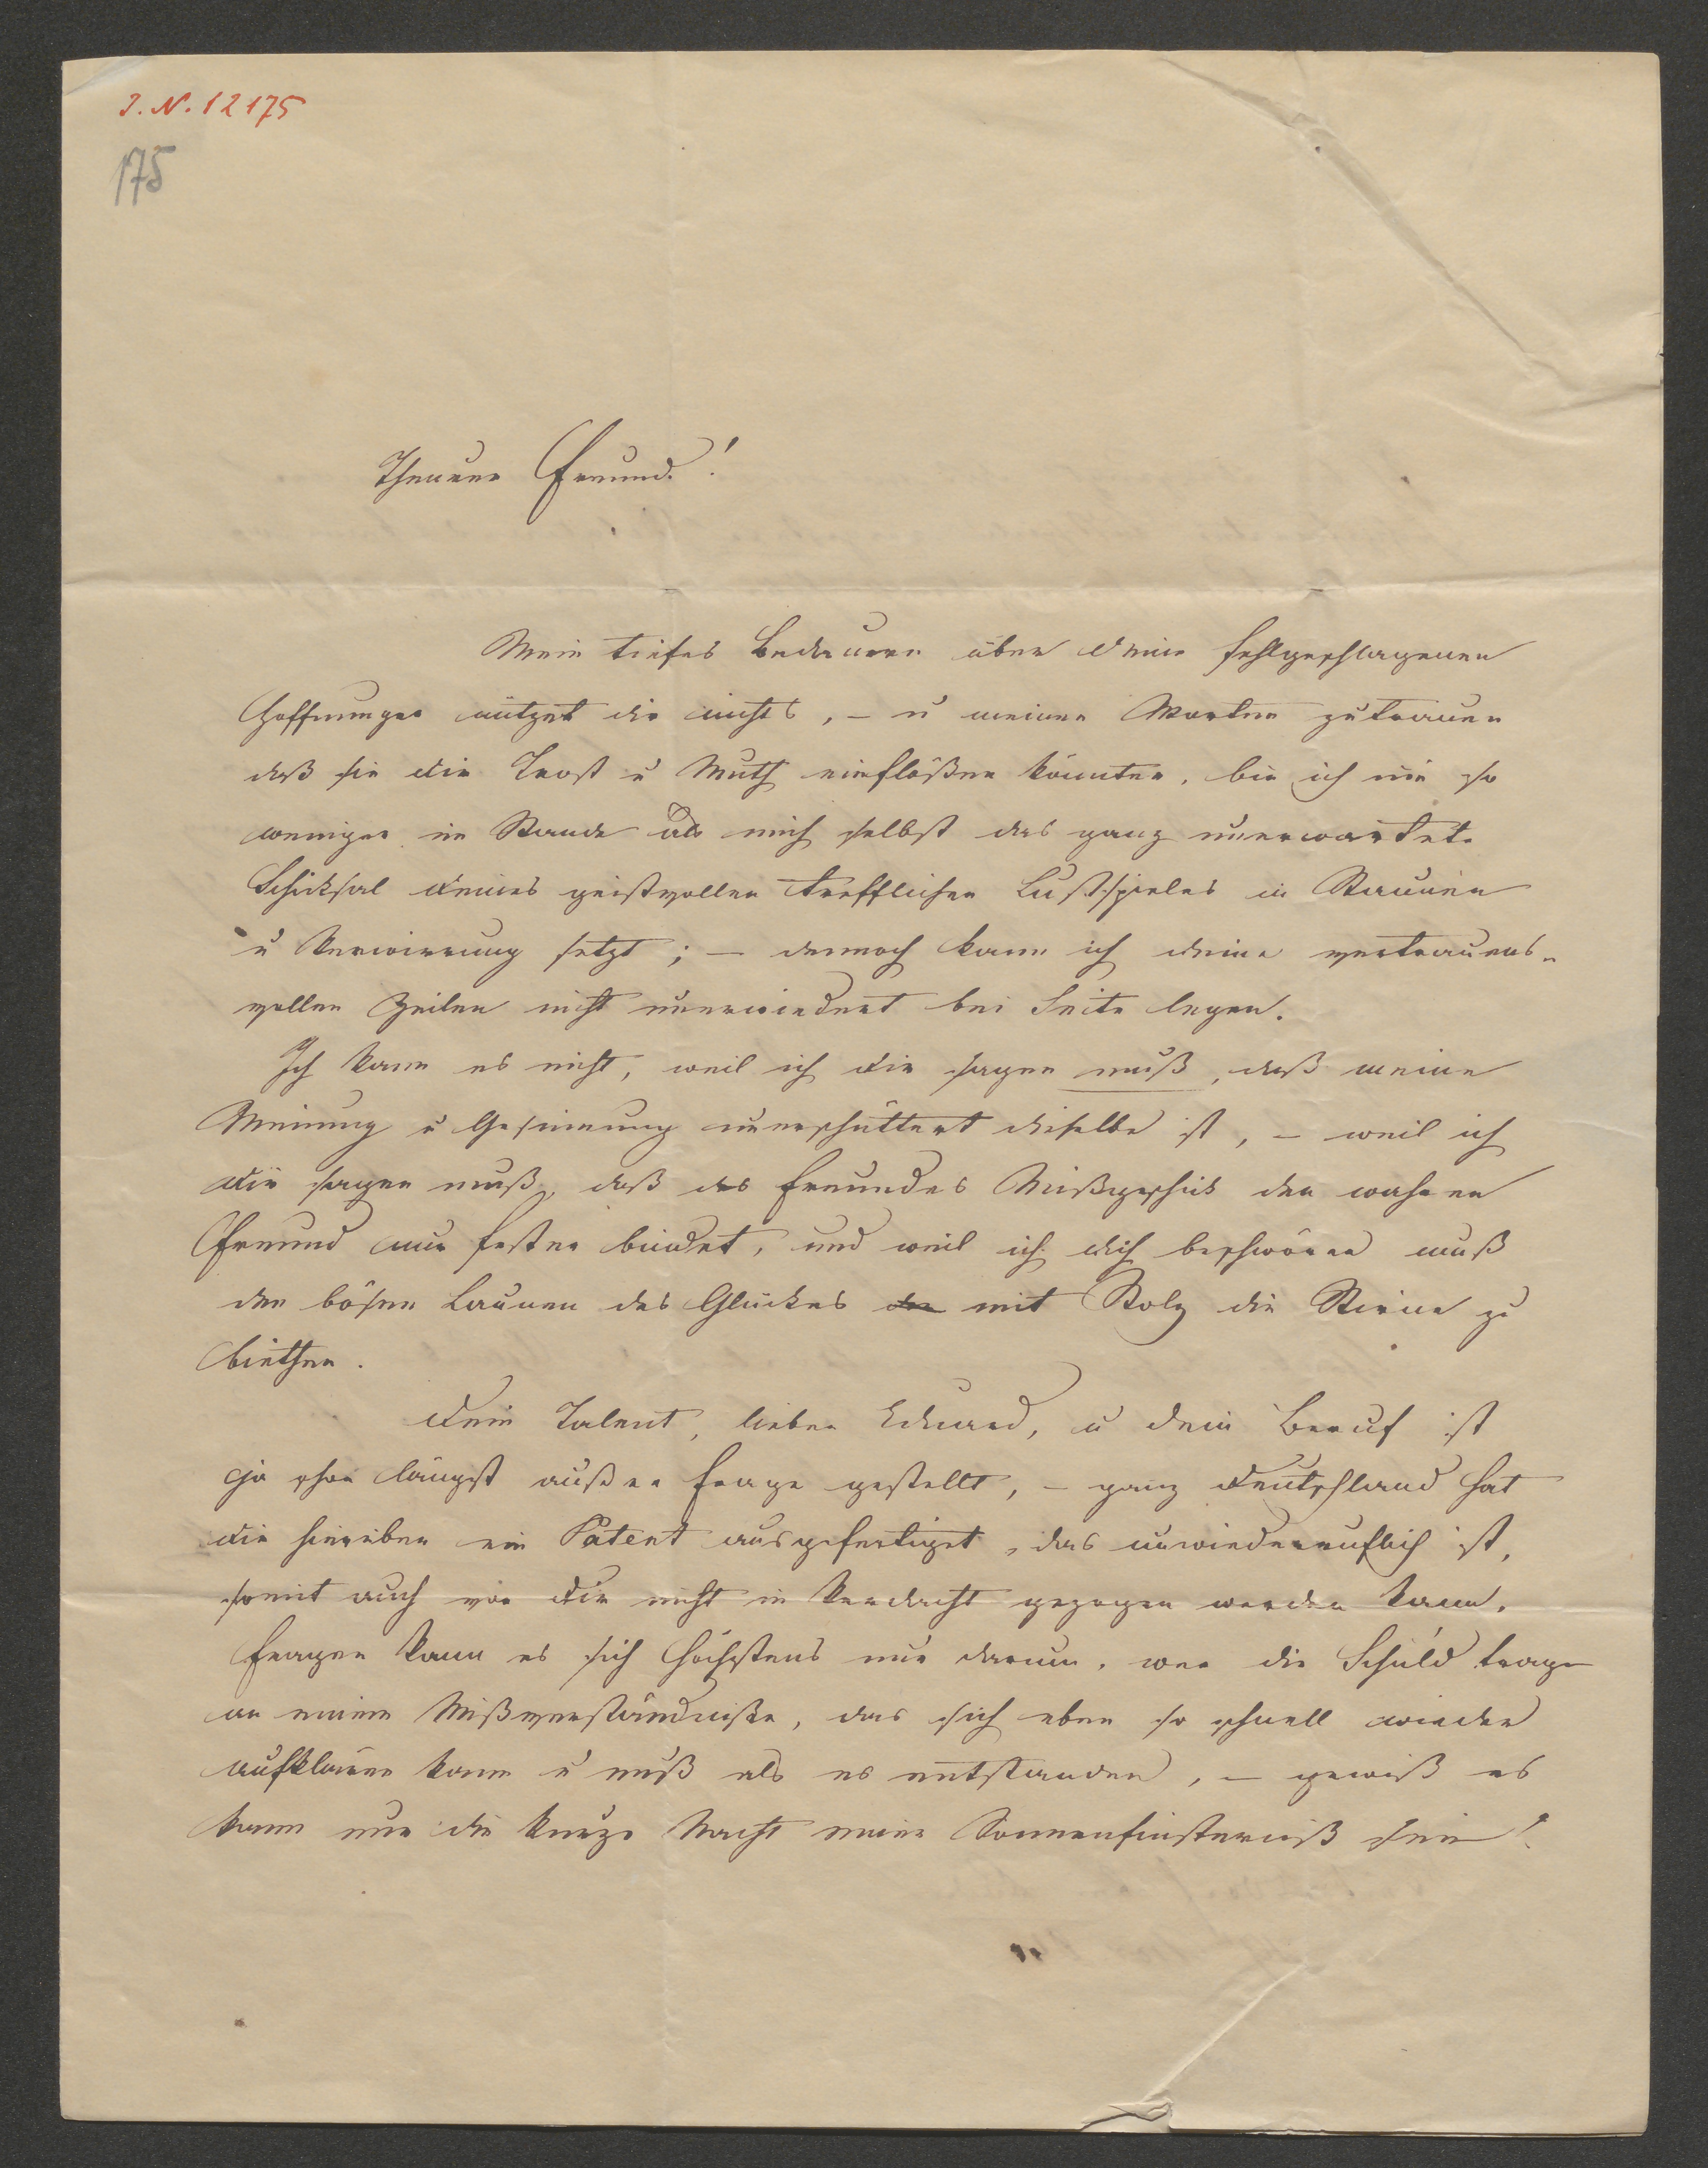 I. N. 12175
175
Theurer Freund!
Mein tiefes Bedauern über deine fehlgeschlagenen
Hoffnungen nützet dir nichts, – u meinen Worten zutrauen
daß sie dir Trost u Muth einflößen könnten, bin ich um so
weniger im Stande als mich selbst das ganz unerwartete
Schicksal deines geistvollen trefflichen Lustspieles in Staunen
u Verwirrung setzt; – dennoch kann ich deine vertrauens-
vollen Zeilen nicht unerwiedert bei Seite legen.
Ich kann es nicht, weil ich dir sagen muß, daß meine
Meinung u Gesinnung unerschüttert dieselbe ist, – weil ich
dir sagen muß, daß des Freundes Mißgeschick den wahren
Freund nur fester bindet, und weil ich dich beschwören muß
den bösen Launen des Glückes mit Stolz die Stirne zu
biethen.
Dein Talent, lieber Eduard, u dein Beruf ist
ja schon längst außer Frage gestellt, – ganz Deutschland hat
dir hierüber ein Patent ausgefertiget, das unwiederruflich ist,
somit auch von dir nicht in Verdacht gezogen werden kann.
Fragen kann es sich höchstens nur darum, wer die Schuld trage
an einem Mißverständnisse, das sich eben so schnell wieder
aufklären kann u muß als es entstanden, – gewiß es
kann nur die kurze Nacht einer Sonnenfinsterniß sein!